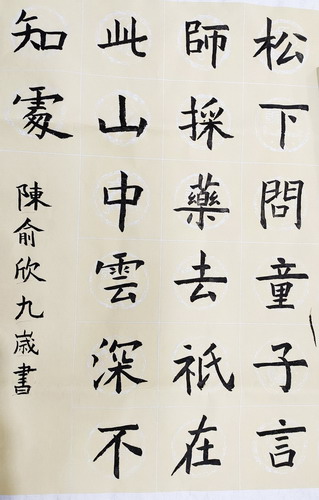 松下問童子言
師採藥去祇在
此山中雲深不
知處
陳俞欣九歲書